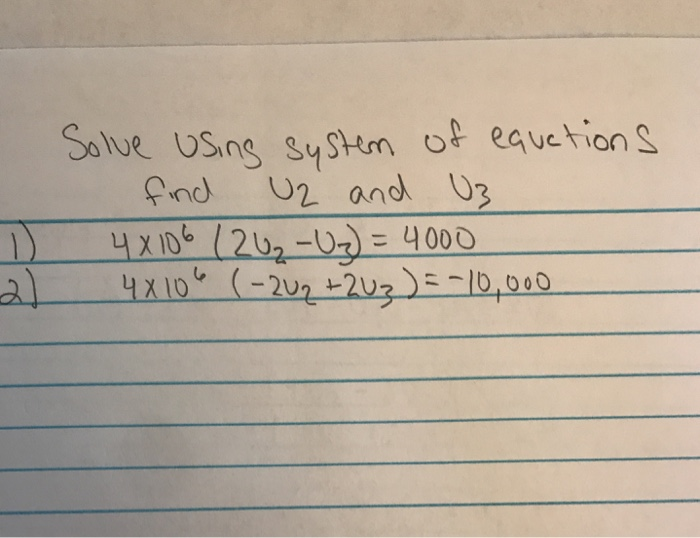 Solve Using system of equations
find U2 and U3
1) 4×10⁶ (2U₂-U₃) = 4000
2) 4×10⁶ (-2U₂+2U₃) = -10,000